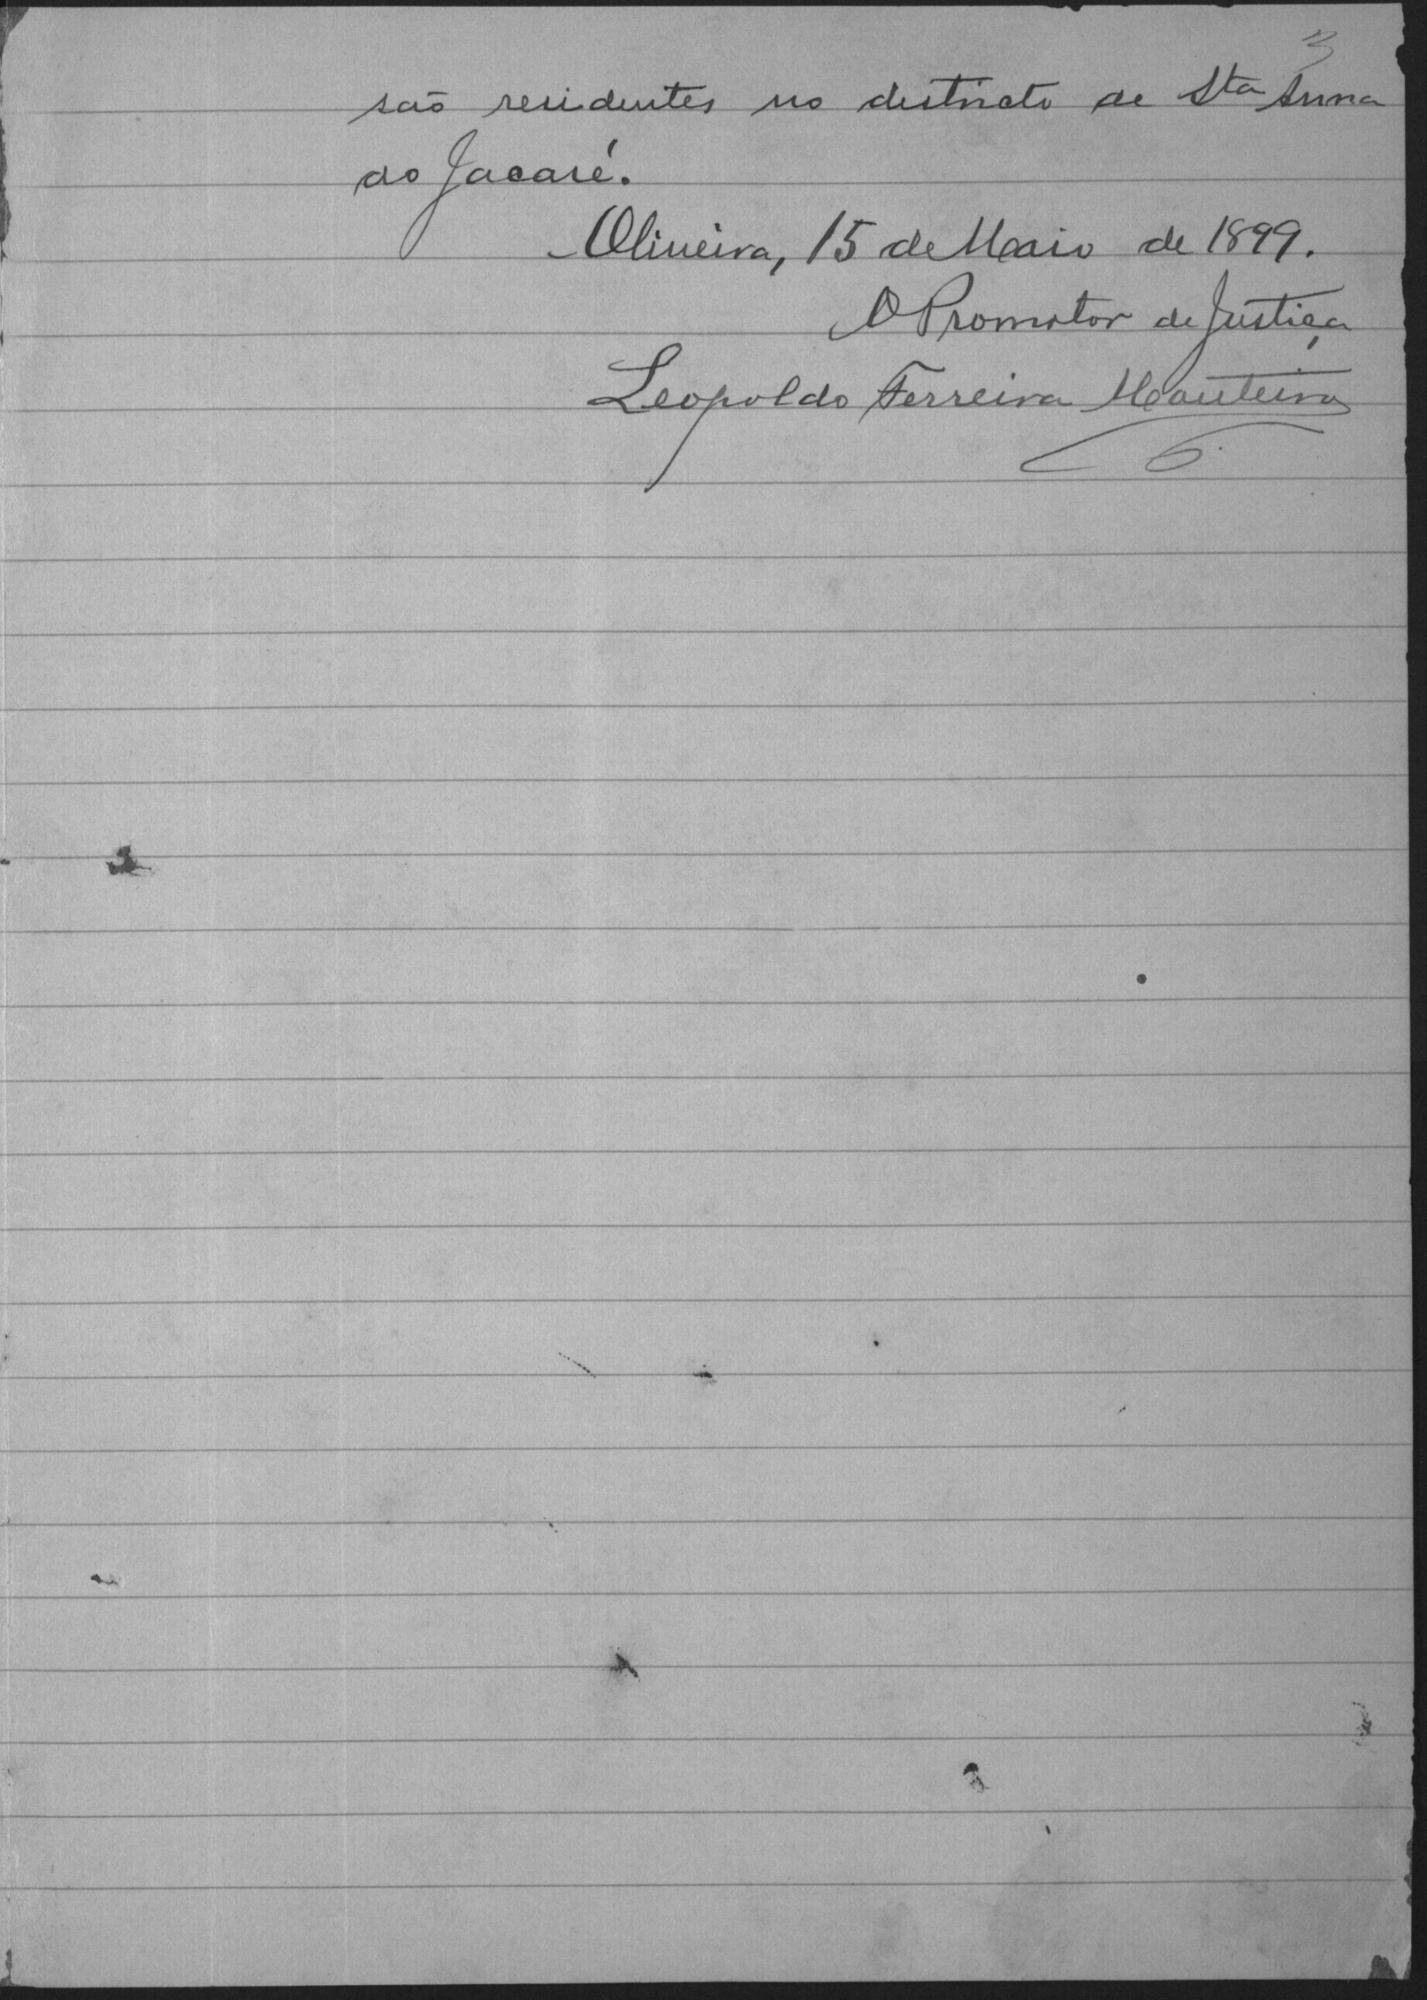 3
são residentes no districto de Sta Anna
do Jacaré.
Oliveira, 15 de Maio de 1899.
O Promotor de Justiça
Leopoldo Ferreira Monteiro